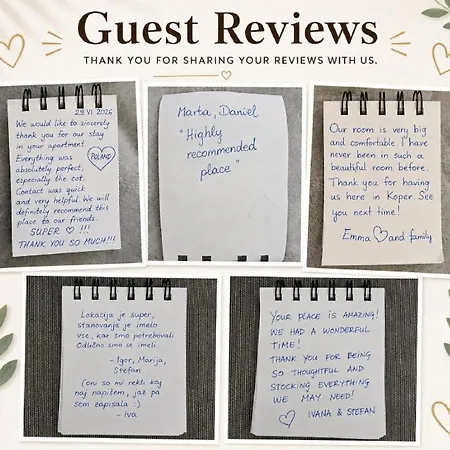 Guest Reviews
THANK YOU FOR SHARING YOUR REVIEWS WITH US.
29.VI 2026
We would like to sincerely
thank you for our stay
in your apartment!
Everything was
absolutely perfect,
especially the cot.
POLAND
Contact was quick
and very helpful. We will
definitely recommend this
place to our friends.
SUPER ♡ !!!
THANK YOU SO MUCH!!!
Marta, Daniel
"Highly
recommended
place"
Our room is very big
and comfortable. I have
never been in such a
beautiful room before.
Thank you for having
us here in Koper. See
you next time!
Emma ♡ and family
Lokacija je super,
stanovanje je imelo
vse, kar smo potrebovali
Odlično smo se imeli.
- Igor, Marija,
Stefan
(oni so mi rekli kaj
naj napišem, jaz pa
sem zapisala :)
- Iva
YOUR PLACE IS AMAZING!
WE HAD A WONDERFUL
TIME!
THANK YOU FOR BEING
SO THOUGHTFUL AND
STOCKING EVERYTHING
WE MAY NEED!
♡ IVANA & STEFAN